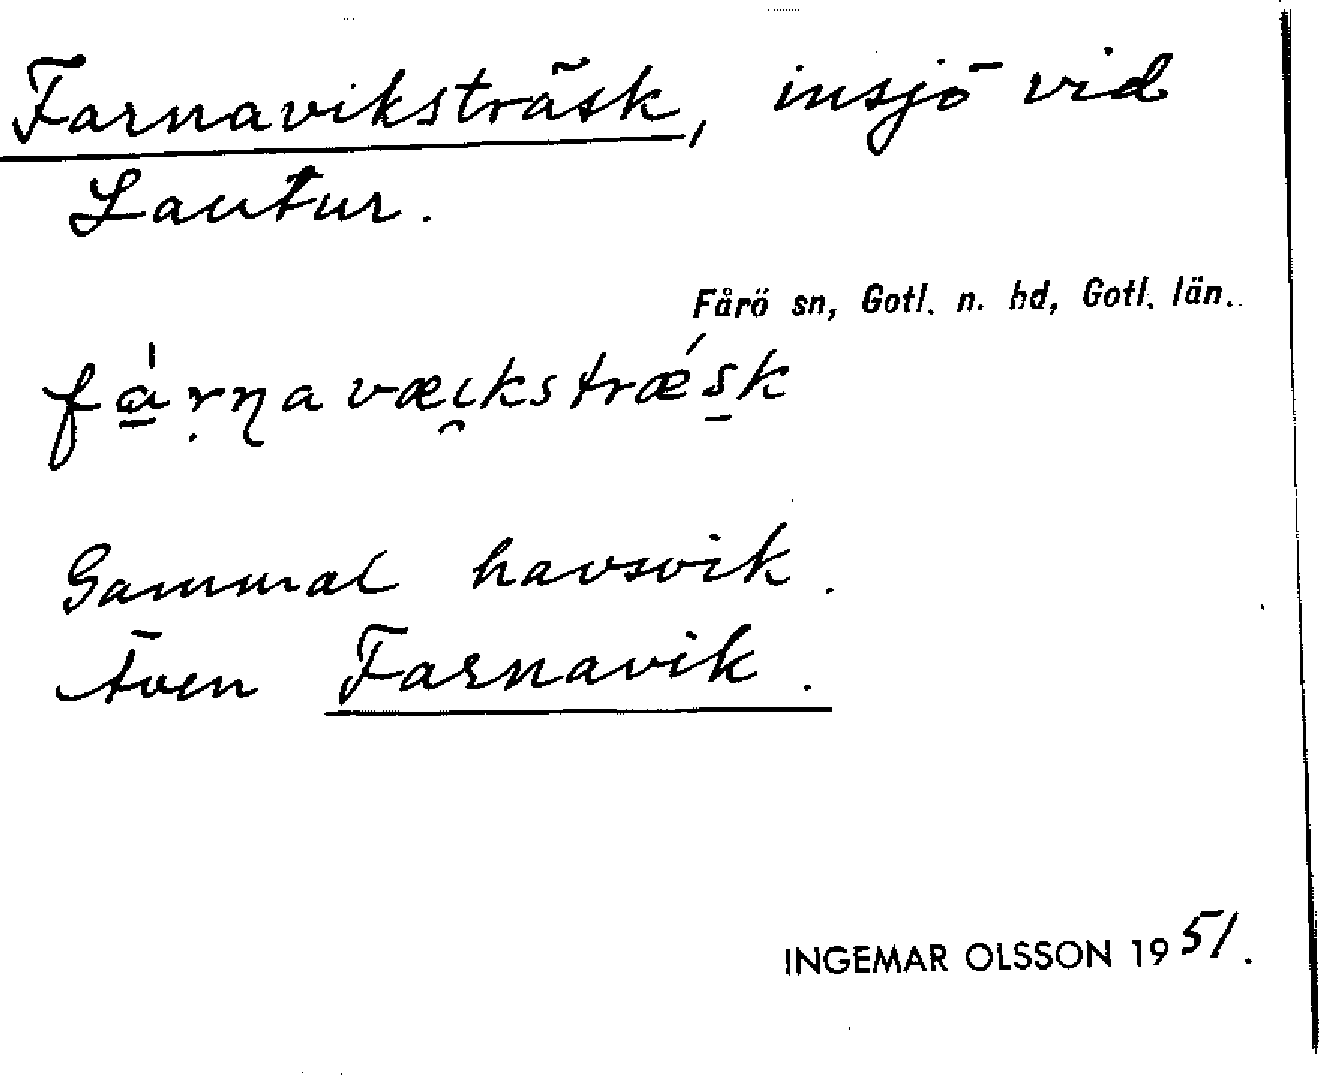 Farnaviksträsk, insjö vid
Lautur.
Fårö sn, Gotl. n. hd, Gotl. län.
fa̱̍ṛɳavæi̯kstrǽs̱k
Gammal havsvik.
Även Farnavik.
INGEMAR OLSSON 1951.